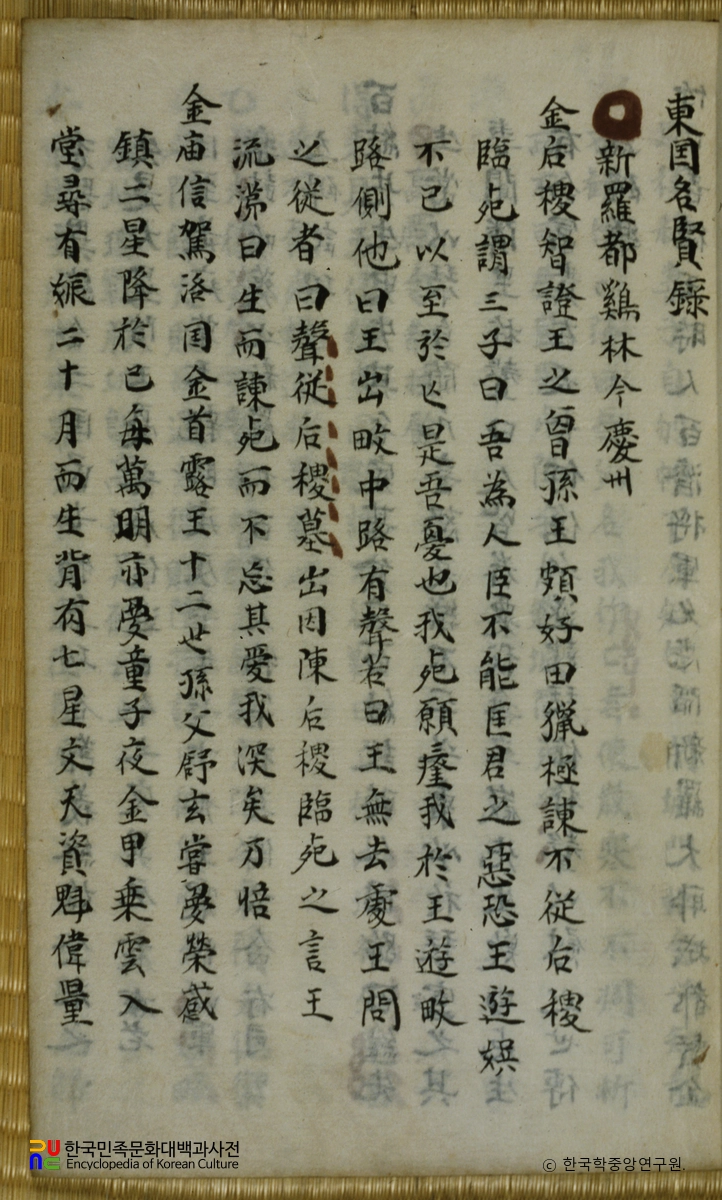 東囯名賢錄
新羅都鷄林今慶州
金后稷智證王之曾孫王頗好田獵極諫不從后稷
臨死謂三子曰吾為人臣不能匡君之惡恐王遊娛
不已以至於亡是吾憂也我死願瘞我於王遊畋
路側他日王出畋中路有聲若曰王無去處王問
之従者曰聲従后稷墓出因陳后稷臨死之言王
流涕曰生而諫死而不忘其愛我深矣乃悟
金庙信駕洛囯金首露王十二世孫父舒玄嘗夢榮惑
鎮二星降於己每萬明亦夢童子夜金甲乗雲入
堂尋有娠二十月而生背有七星文天資魁偉量
한국민족문화대백과사전
Encyclopedia of Korean Culture
ⓒ 한국학중앙연구원.